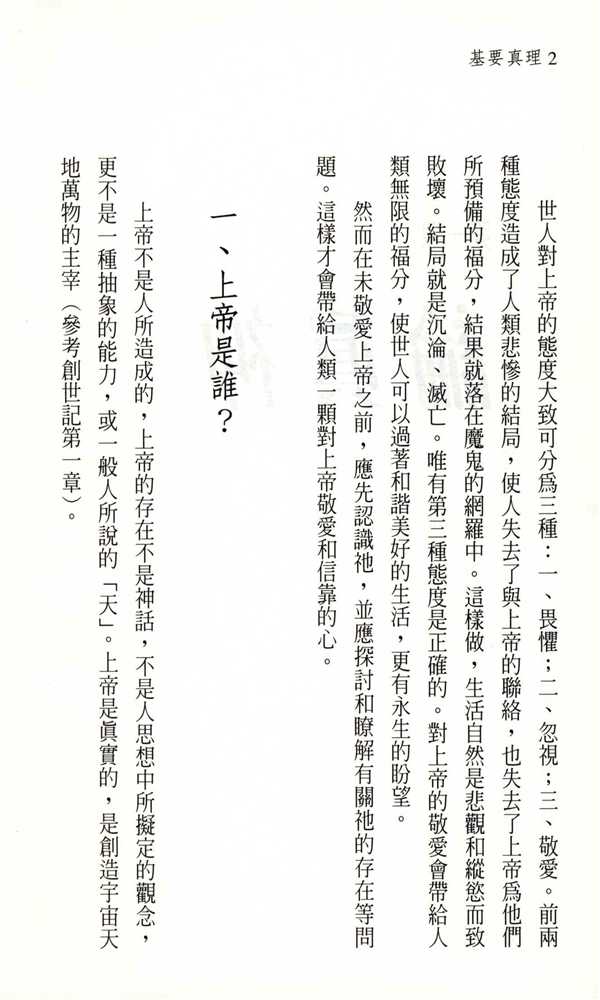 基要真理 2
世人對上帝的態度大致可分爲三種：一、畏懼；二、忽視；三、敬愛。前兩
種態度造成了人類悲慘的結局，使人失去了與上帝的聯絡，也失去了上帝爲他們
所預備的福分，結果就落在魔鬼的網羅中。這樣做，生活自然是悲觀和縱慾而致
敗壞。結局就是沉淪、滅亡。唯有第三種態度是正確的。對上帝的敬愛會帶給人
類無限的福分，使世人可以過著和諧美好的生活，更有永生的盼望。
然而在未敬愛上帝之前，應先認識祂，並應探討和瞭解有關祂的存在等問
題。這樣才會帶給人類一顆對上帝敬愛和信靠的心。
一、上帝是誰？
上帝不是人所造成的，上帝的存在不是神話，不是人思想中所擬定的觀念，
更不是一種抽象的能力，或一般人所說的「天」。上帝是眞實的，是創造宇宙天
地萬物的主宰（參考創世記第一章）。